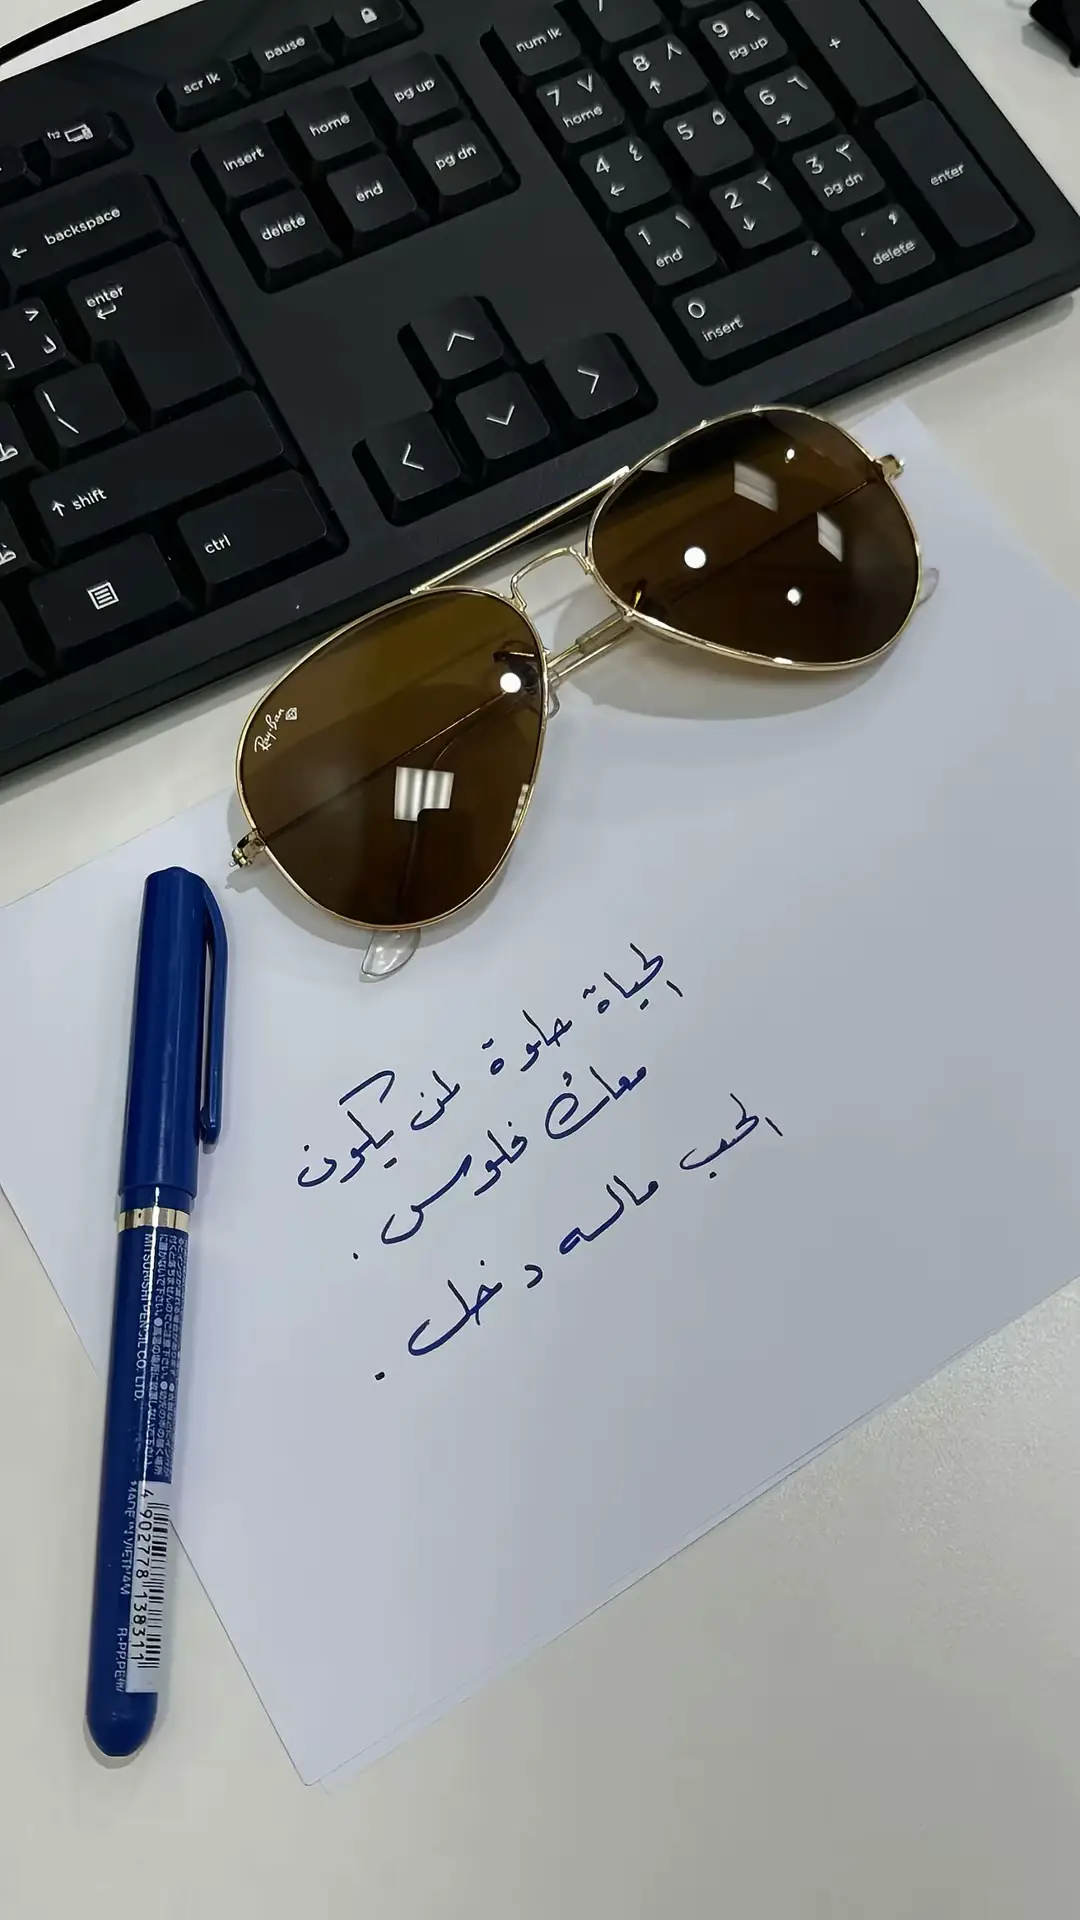 scr lk
pause
insert
home
pg up
delete
end
pg dn
num lk
/
7 ٧ home
8 ٨
9 ٩ pg up
+
4 ٤
5 ٥
6 ٦
1 ١ end
2 ٢
3 ٣ pg dn
enter
0 insert
delete
f12
backspace
enter
\
shift
ctrl
Ray-Ban
الحياة حلوة لمن يكون
معاك فلوس .
الحب ماله دخل .
MITSUBISHI PENCIL CO., LTD.
MADE IN VIETNAM
4 902778 138311